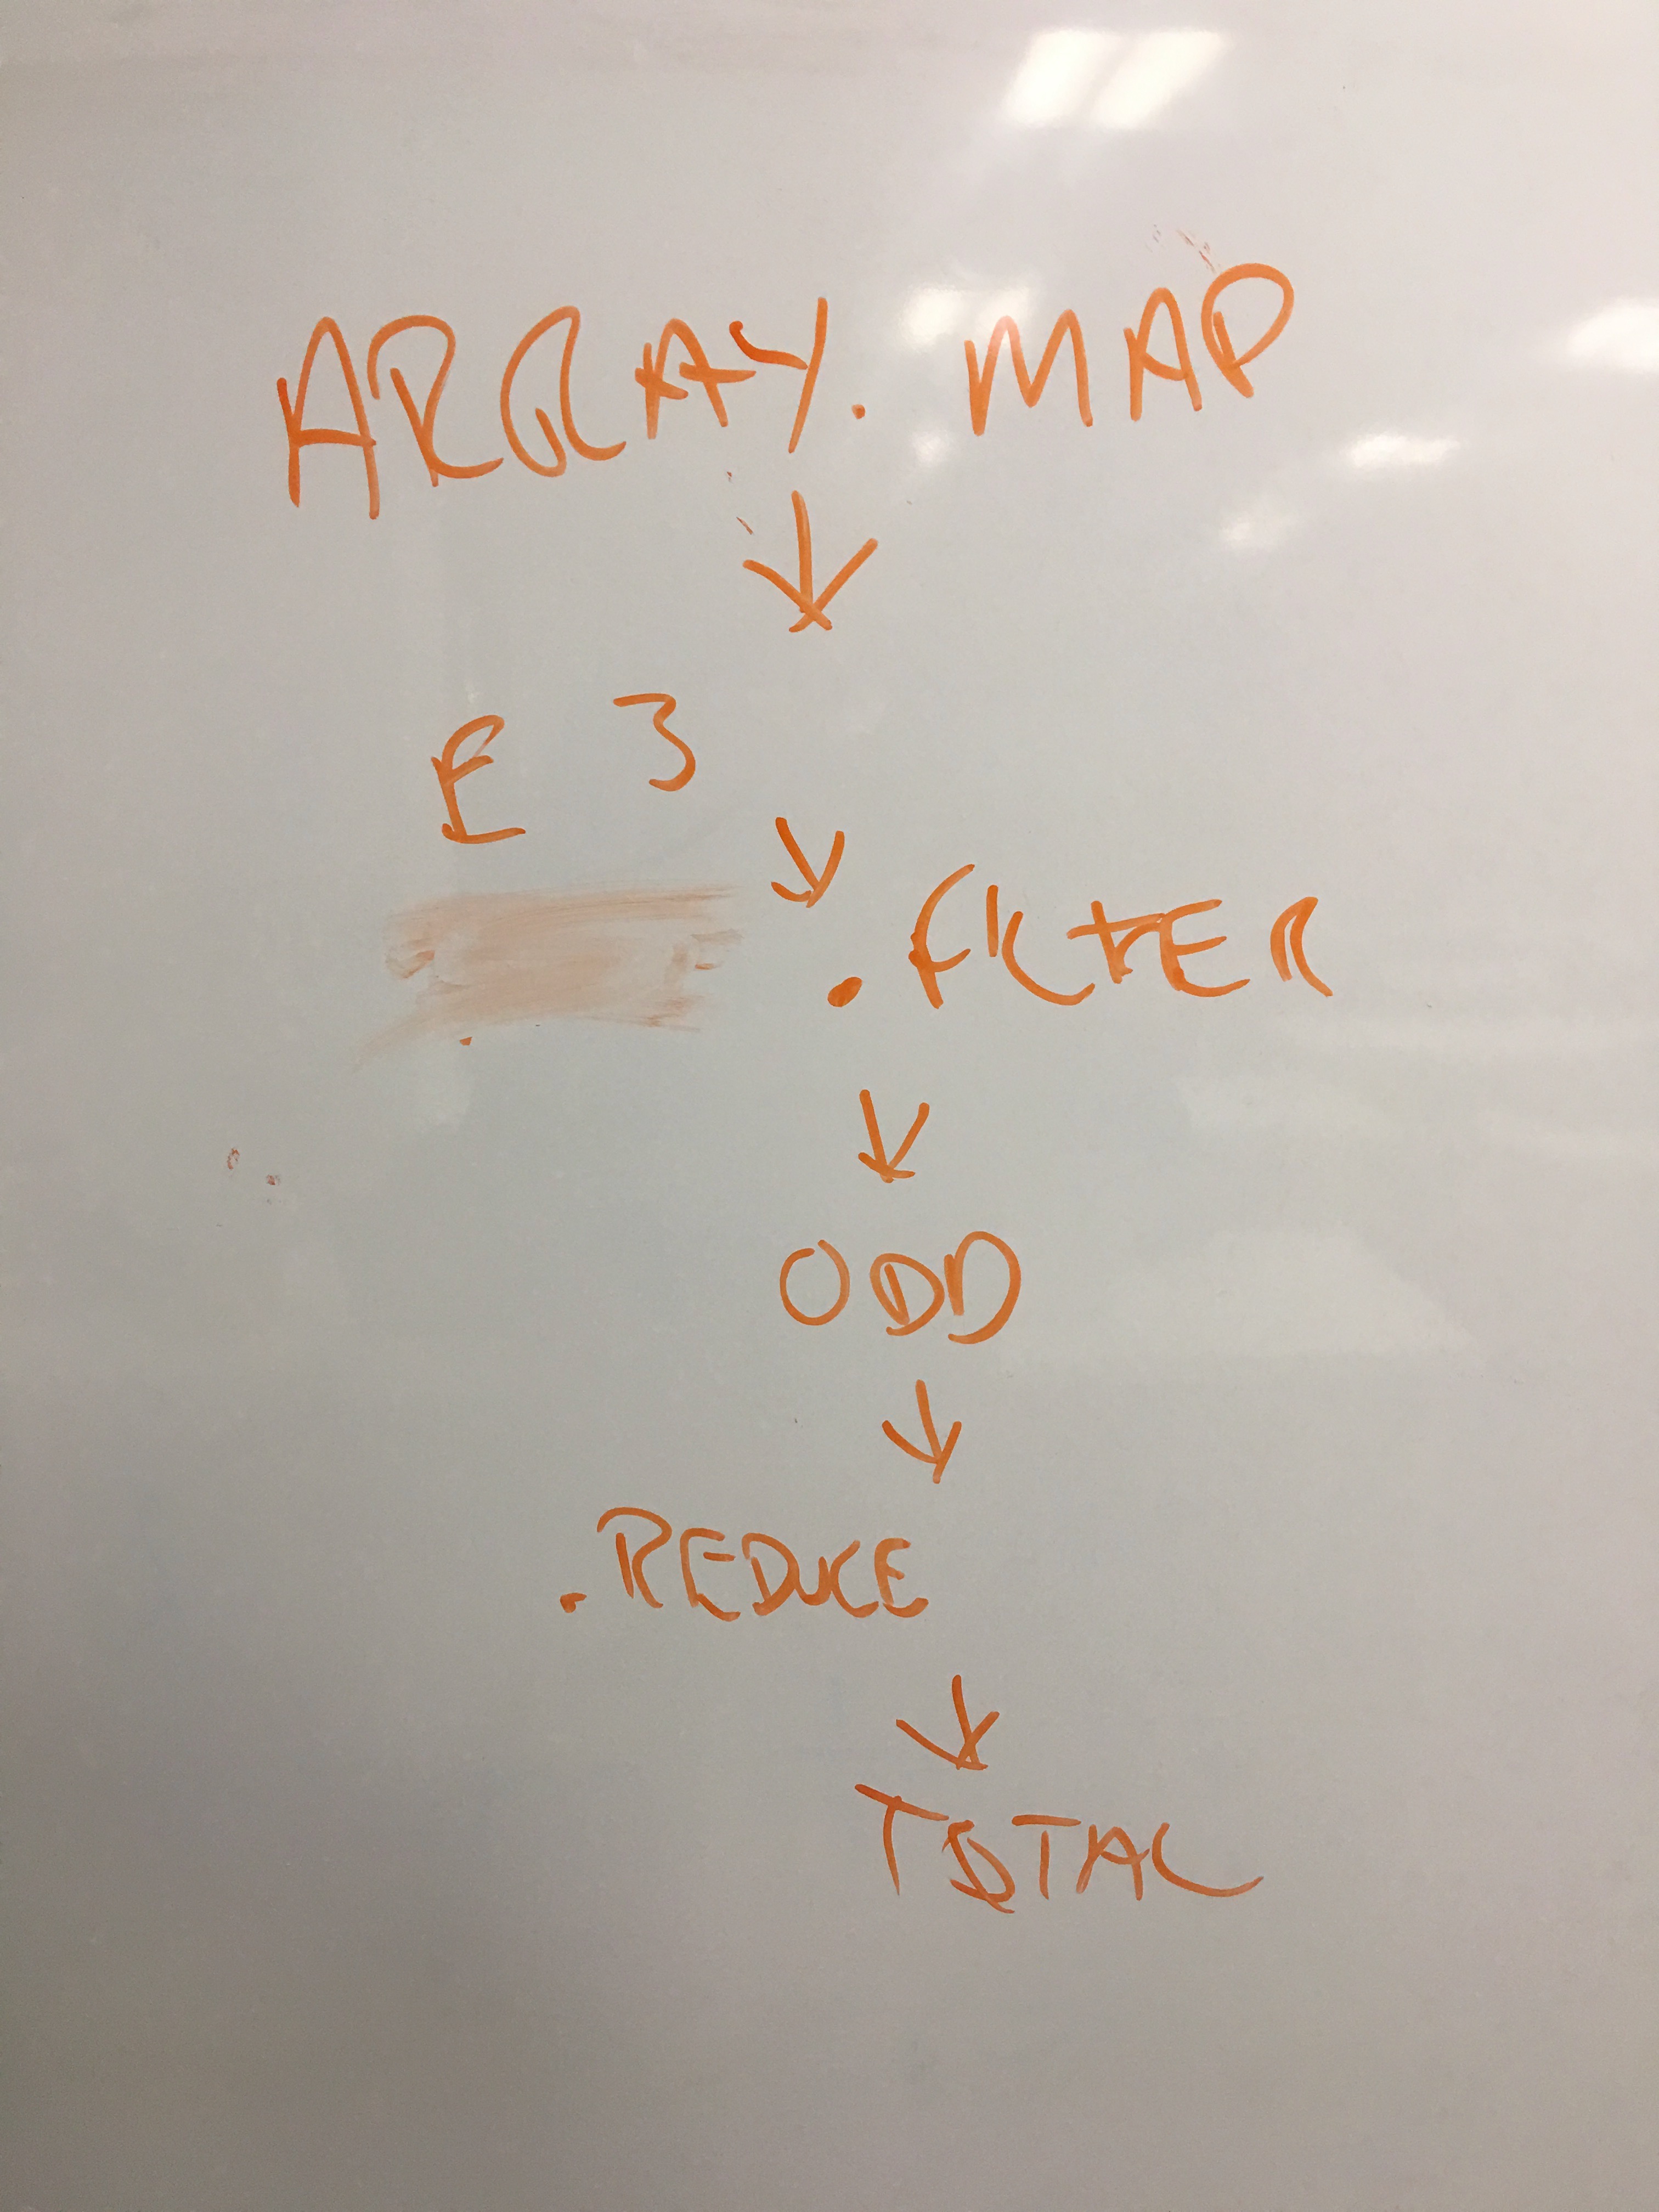 ARRAY.MAP
↓
E 3
↓
.FILTER
↓
ODD
↓
.REDUCE
↓
TOTAL